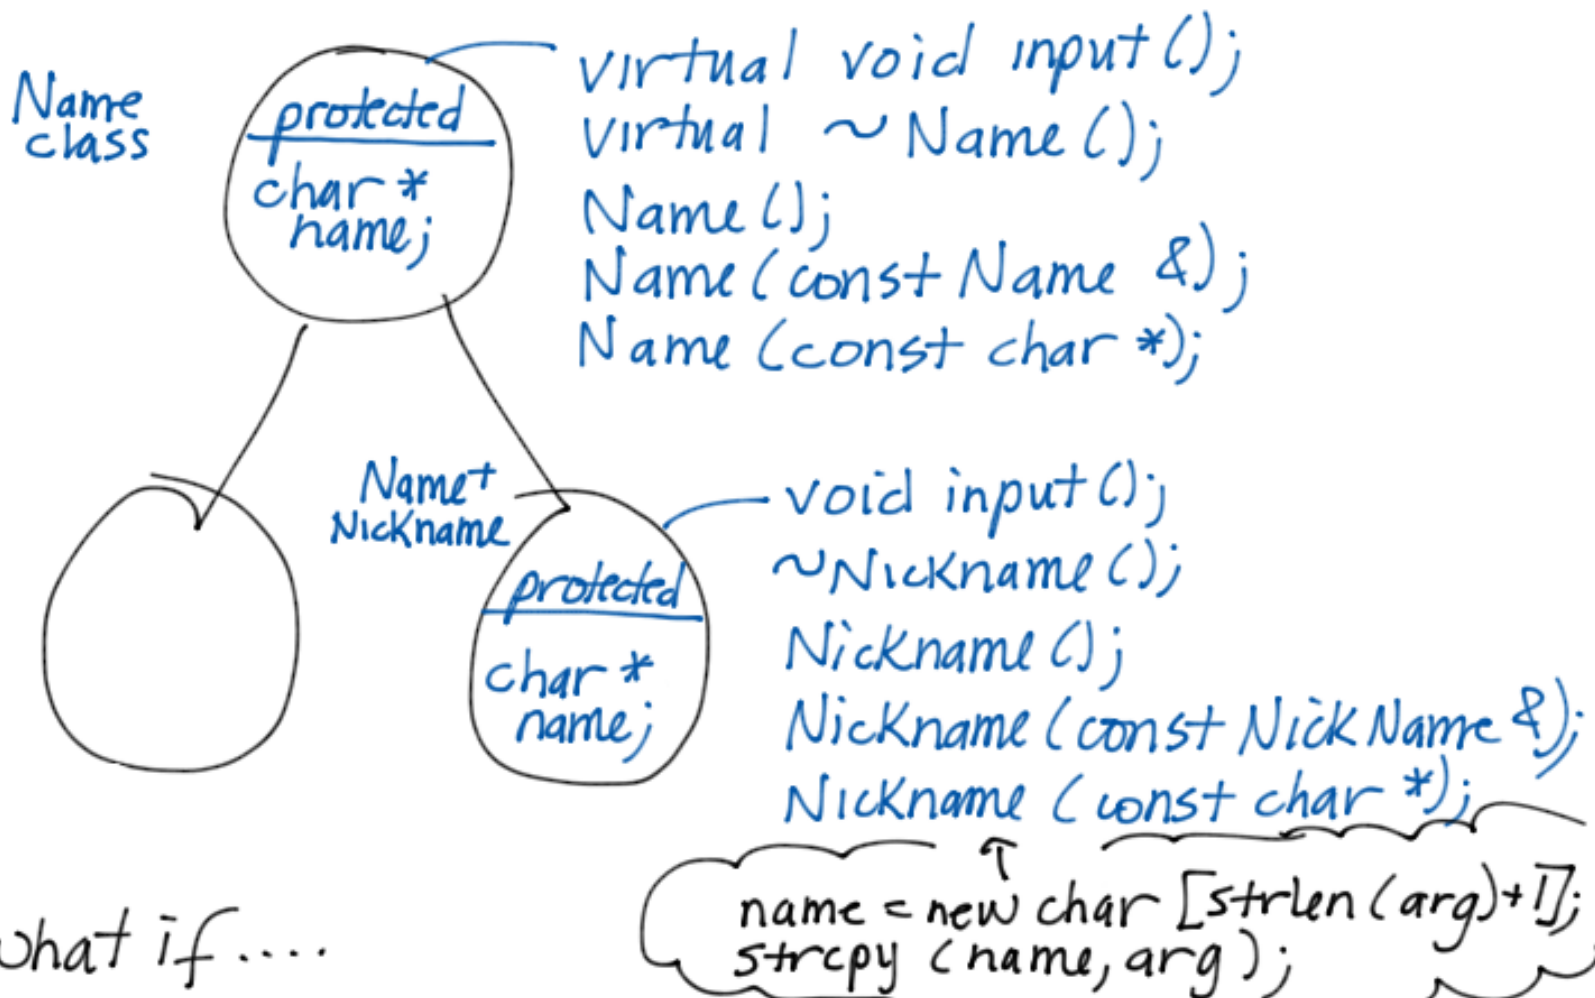 Name
class
protected
char *
name;
virtual void input();
virtual ~Name();
Name();
Name(const Name &);
Name(const char *);
Name+
Nickname
protected
char *
name;
void input();
~Nickname();
Nickname();
Nickname(const NickName &);
Nickname(const char *);
name = new char [strlen(arg)+1];
strcpy (name, arg);
what if....